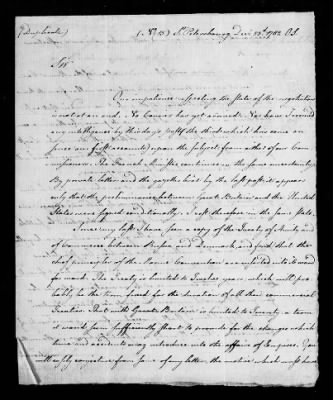 (Duplicate) (No. 15) St. Petersbourg Decr. 1782 O.S.
Sir
Our impatience respecting the State of the negotiations
is not at an end. No Courier has yet arrived. Nor have I received
any intelligence by this days post (the third which has come on
since our first accounts) upon the subject from either of our Com-
missioners. The French Minister continues in the same uncertainty.
By private letters and the gazettes bro't by the last post it appears
only that the preliminaries between Great Britain and the United
States were signed conditionally. I rest therefore in the same state.
Since my last I have seen a copy of the Treaty of Amity and
of Commerce between Russia and Denmark, and find that the
chief principles of the Marine Convention are adopted into it word
for word. The Treaty is limited to Twelve years which will pro-
bably be the term fixed for the duration of all their commercial
Treaties. That with Great Britain is limited to Twenty, a term
it would seem sufficiently short to provide for the changes which
time and accidents may introduce into the affairs of Empires. You
will easily conjecture from some of my letters, the motive which must have